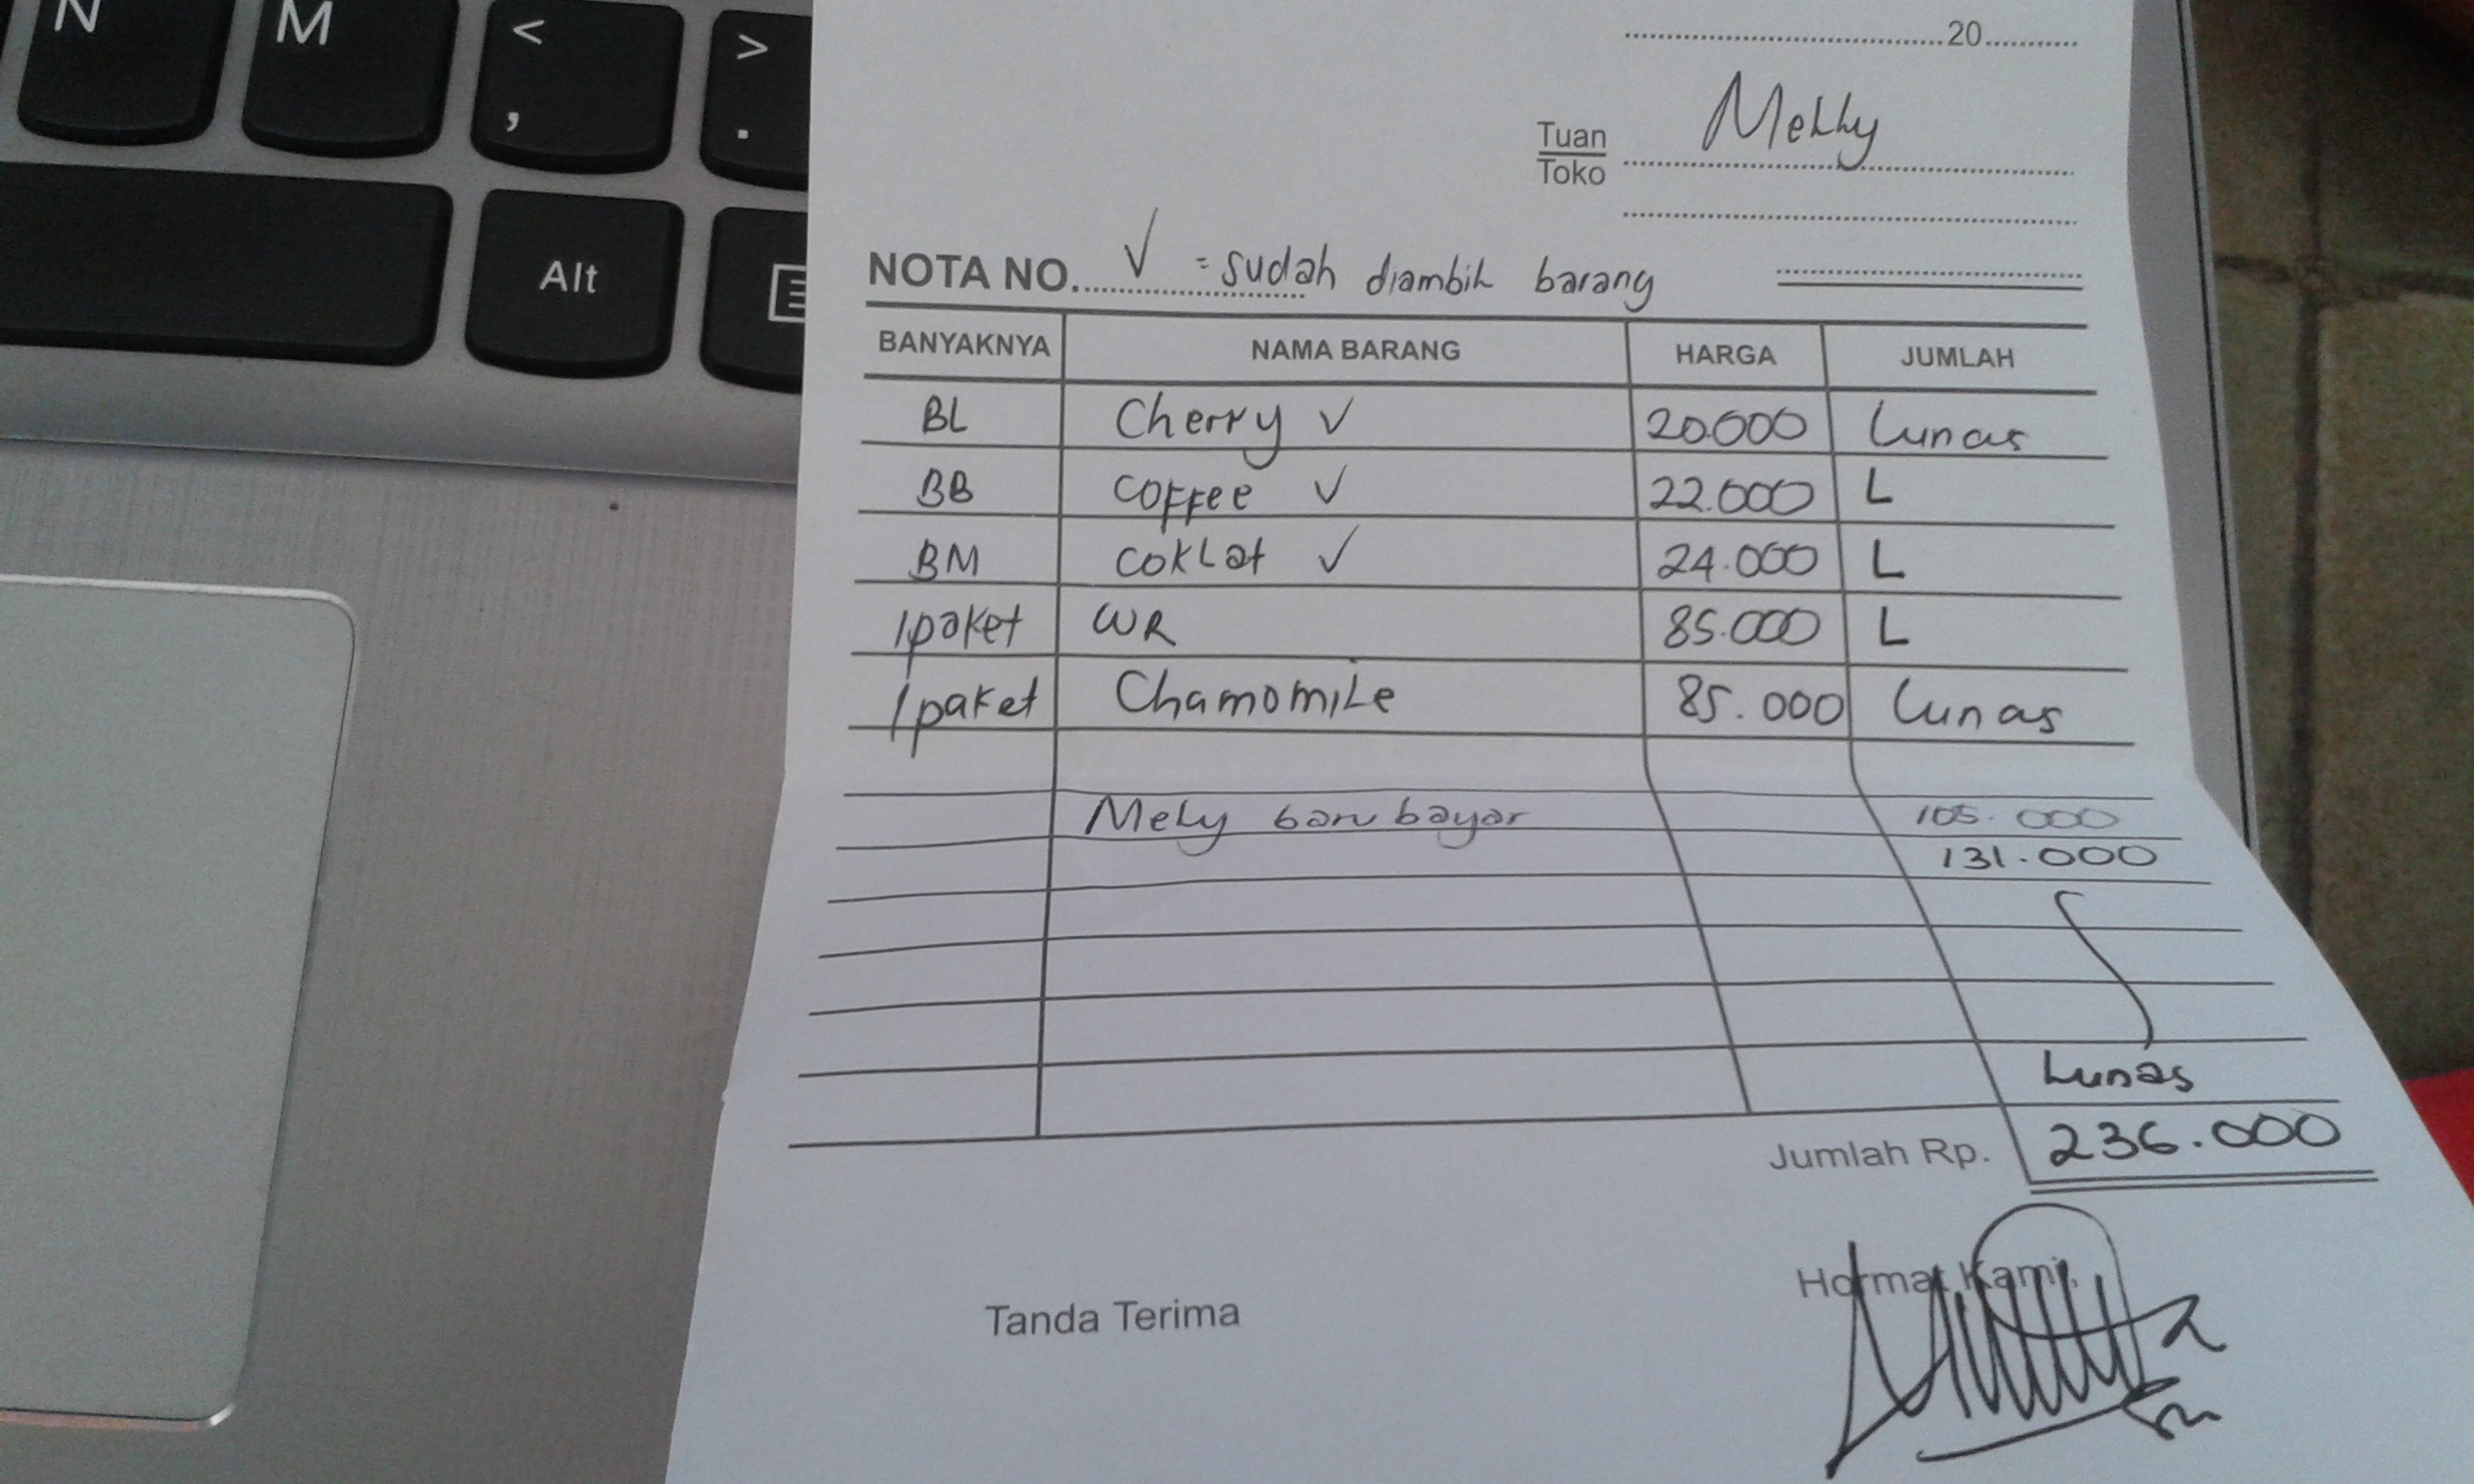 N M < , > .
Alt
20
Tuan
Toko
Melly
NOTA NO. √ = sudah diambil barang
BANYAKNYA NAMA BARANG HARGA JUMLAH
BL Cherry √ 20.000 Lunas
BB coffee √ 22.000 L
BM coklat √ 24.000 L
1 paket WR 85.000 L
1 paket Chamomile 85.000 Lunas
Mely baru bayar 105.000
131.000
Lunas
Jumlah Rp. 236.000
Tanda Terima
Hormat Kami,